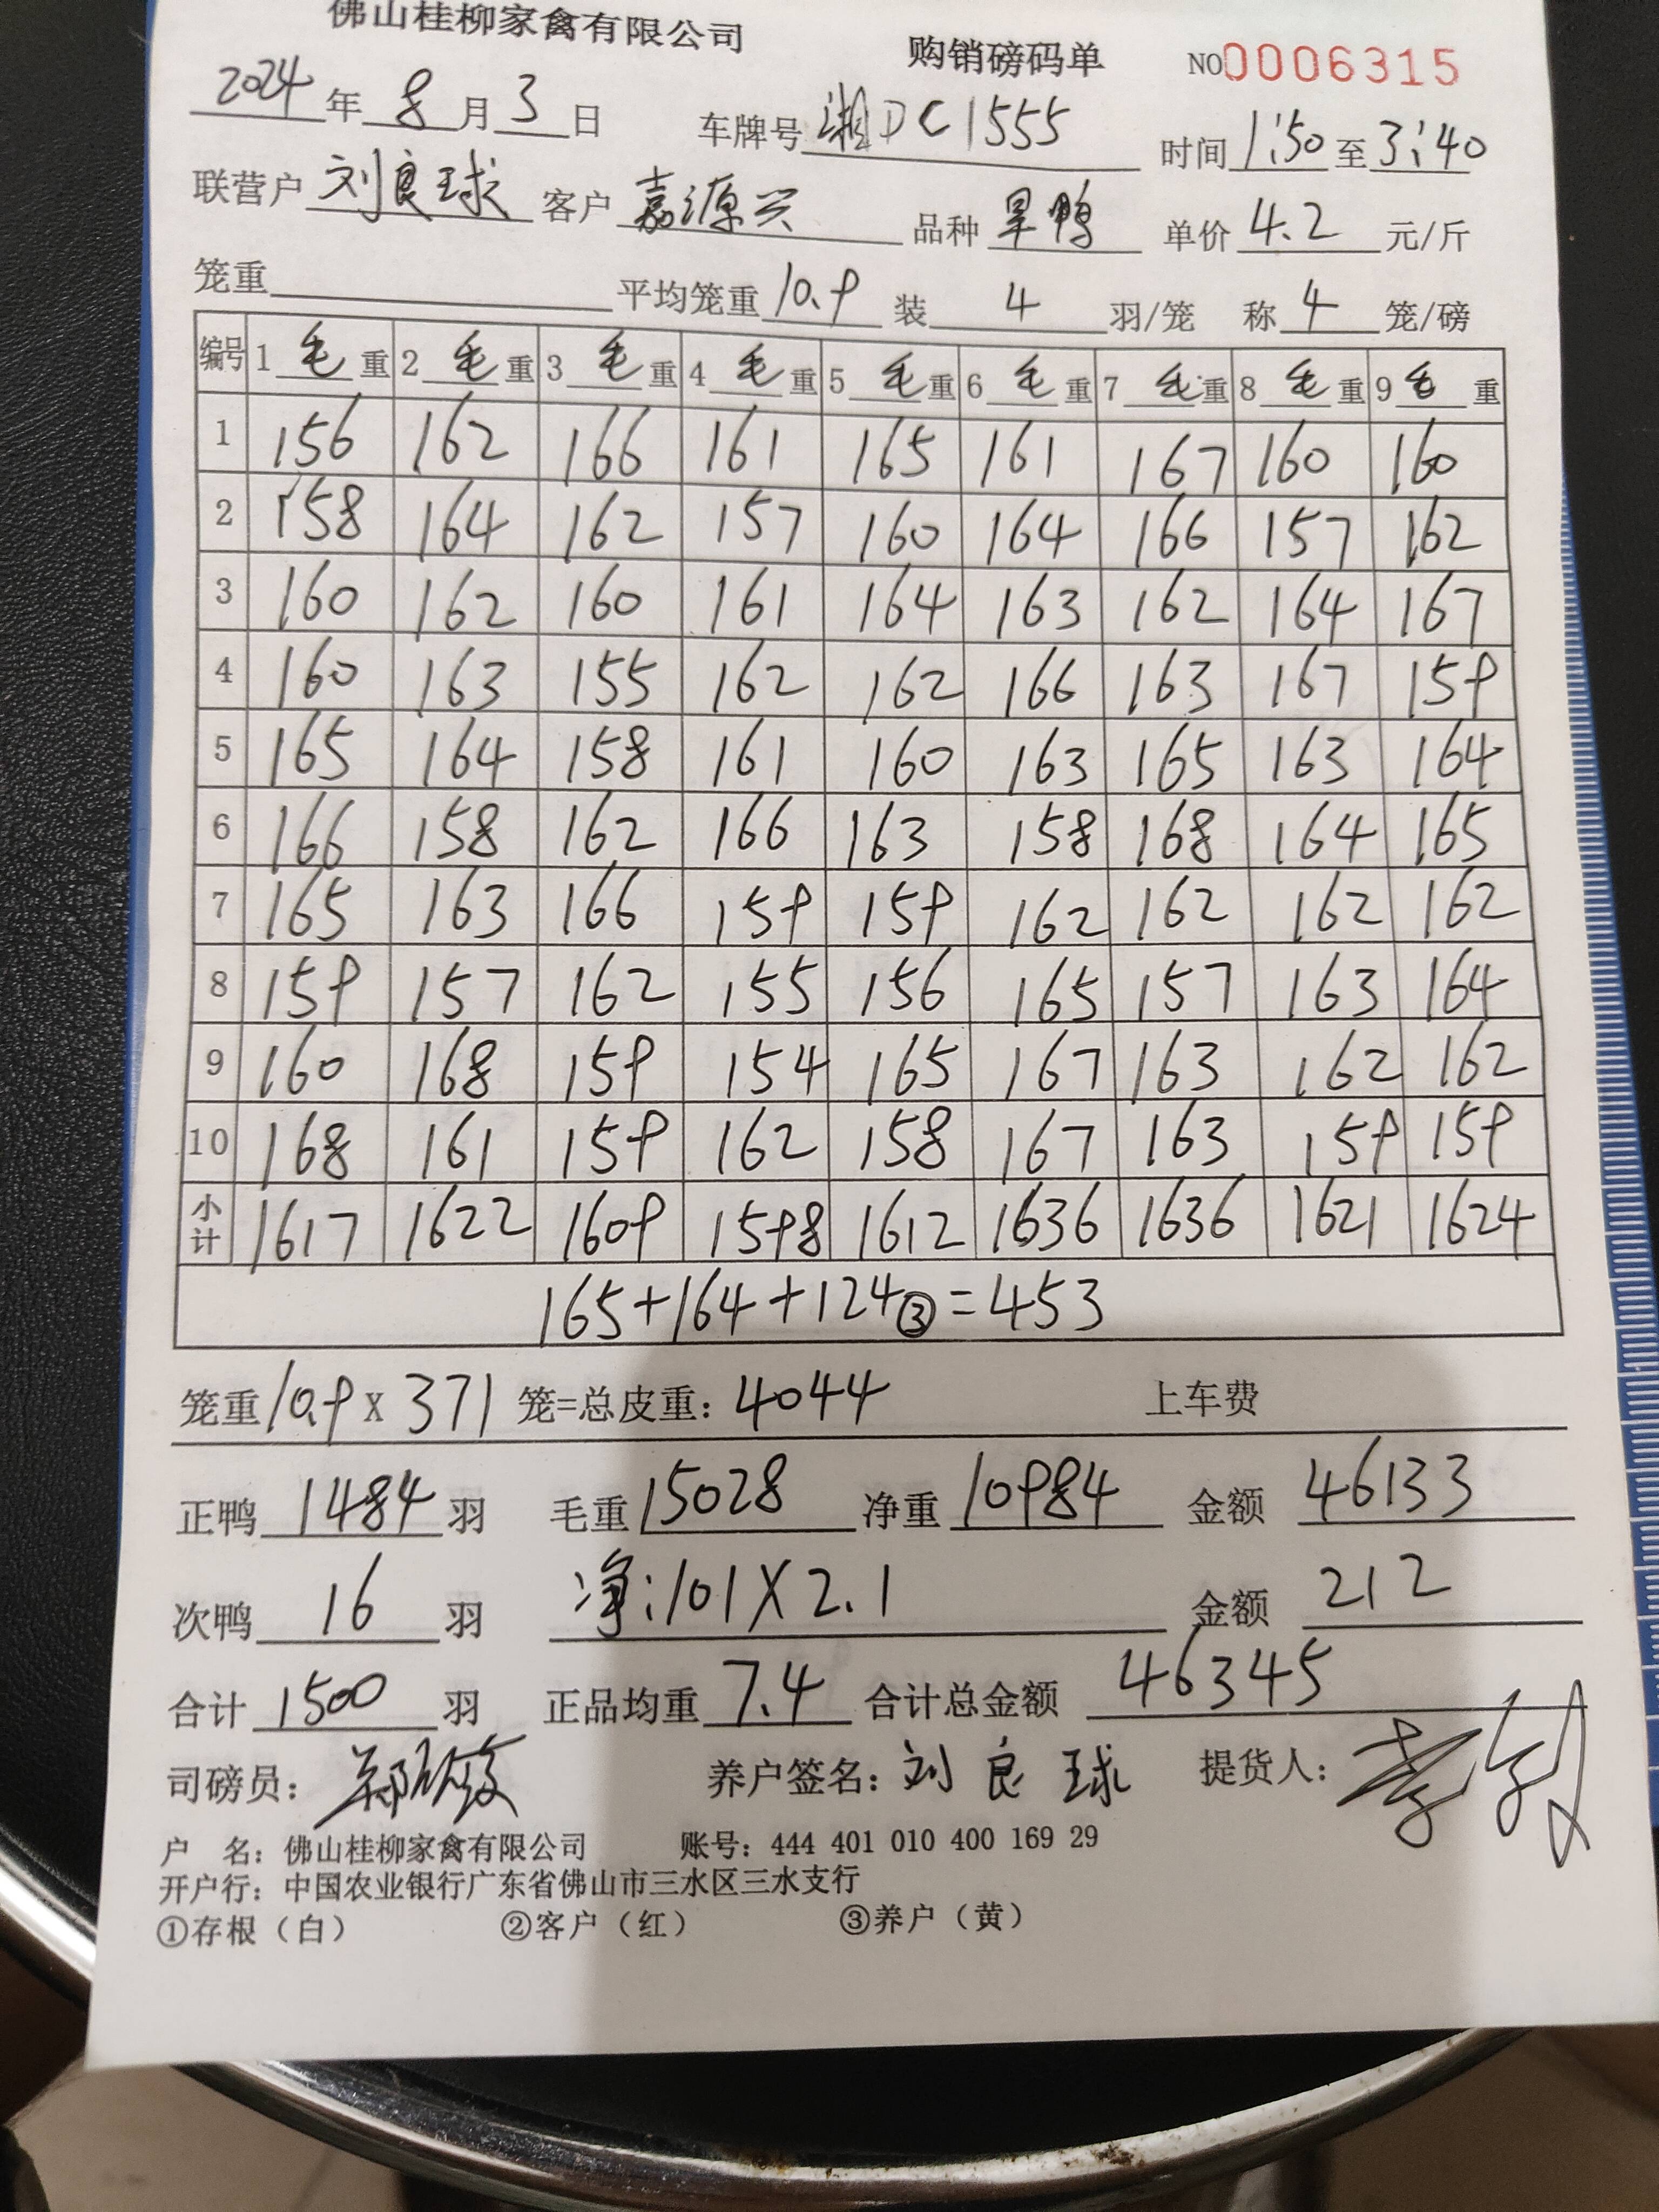 佛山桂柳家禽有限公司 购销磅码单 NO0006315
2024年8月3日 车牌号湘DC1555 时间1:50至3:40
联营户刘良球 客户嘉源兴 品种旱鸭 单价4.2元/斤
笼重 平均笼重10.9 装4羽/笼 称4笼/磅
编号 1毛重 2毛重 3毛重 4毛重 5毛重 6毛重 7毛重 8毛重 9毛重
1 156 162 166 161 165 161 167 160 160
2 158 164 162 157 160 164 166 157 162
3 160 162 160 161 164 163 162 164 167
4 160 163 155 162 162 166 163 167 159
5 165 164 158 161 160 163 165 163 164
6 166 158 162 166 163 158 168 164 165
7 165 163 166 159 159 162 162 162 162
8 159 157 162 155 156 165 157 163 164
9 160 168 159 154 165 167 163 162 162
10 168 161 159 162 158 167 163 159 159
小计 1617 1622 1609 1598 1612 1636 1636 1621 1624
165+164+124③=453
笼重10.9×371笼=总皮重：4044 上车费
正鸭1484羽 毛重15028 净重10984 金额46133
次鸭16羽 净:101×2.1 金额212
合计1500羽 正品均重7.4 合计总金额46345
司磅员： 养户签名：刘良球 提货人：
户 名：佛山桂柳家禽有限公司 账号：444 401 010 400 169 29
开户行：中国农业银行广东省佛山市三水区三水支行
①存根（白） ②客户（红） ③养户（黄）